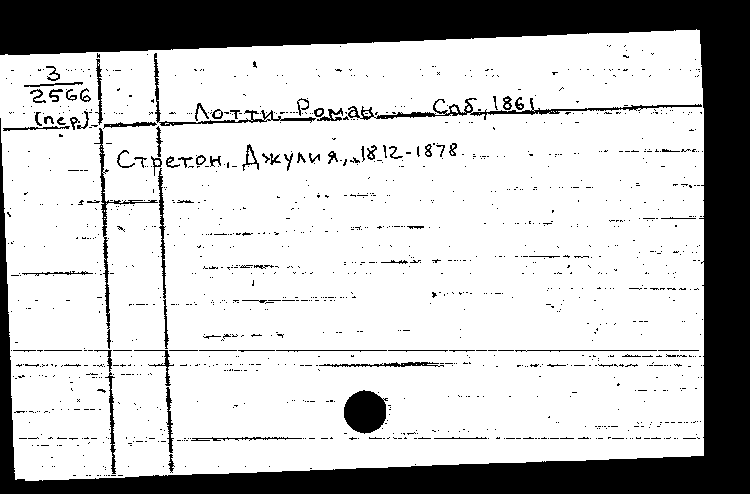 3
2566
(пер.)
Лотти. Роман. Спб., 1861.
Стретон, Джулия, 1812-1878